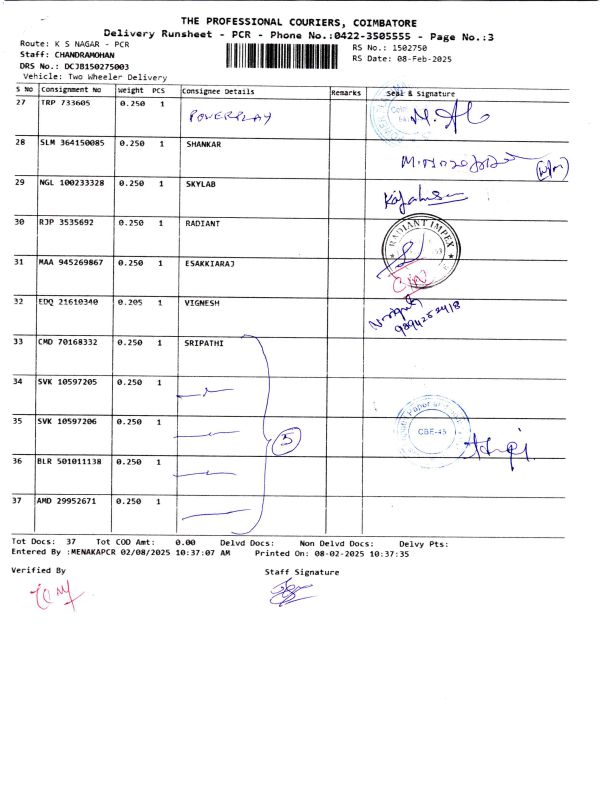 THE PROFESSIONAL COURIERS, COIMBATORE
Delivery Runsheet - PCR - Phone No.:0422-3505555 - Page No.:3
Route: K S NAGAR - PCR RS No.: 1502750
Staff: CHANDRAMOHAN RS Date: 08-Feb-2025
DRS No.: DCJB150275003
Vehicle: Two Wheeler Delivery
S No Consignment No Weight PCS Consignee Details Remarks Seal & Signature
27 TRP 733605 0.250 1 POWERPLAY
28 SLM 364150085 0.250 1 SHANKAR
29 NGL 100233328 0.250 1 SKYLAB
30 RJP 3535692 0.250 1 RADIANT RADIANT IMPEX
31 MAA 945269867 0.250 1 ESAKKIARAJ
32 EDQ 21610340 0.205 1 VIGNESH
33 CMD 70168332 0.250 1 SRIPATHI
34 SVK 10597205 0.250 1
35 SVK 10597206 0.250 1 5 CBE-45
36 BLR 501011138 0.250 1
37 AMD 29952671 0.250 1
Tot Docs: 37 Tot COD Amt: 0.00 Delvd Docs: Non Delvd Docs: Delvy Pts:
Entered By :MENAKAPCR 02/08/2025 10:37:07 AM Printed On: 08-02-2025 10:37:35
Verified By Staff Signature